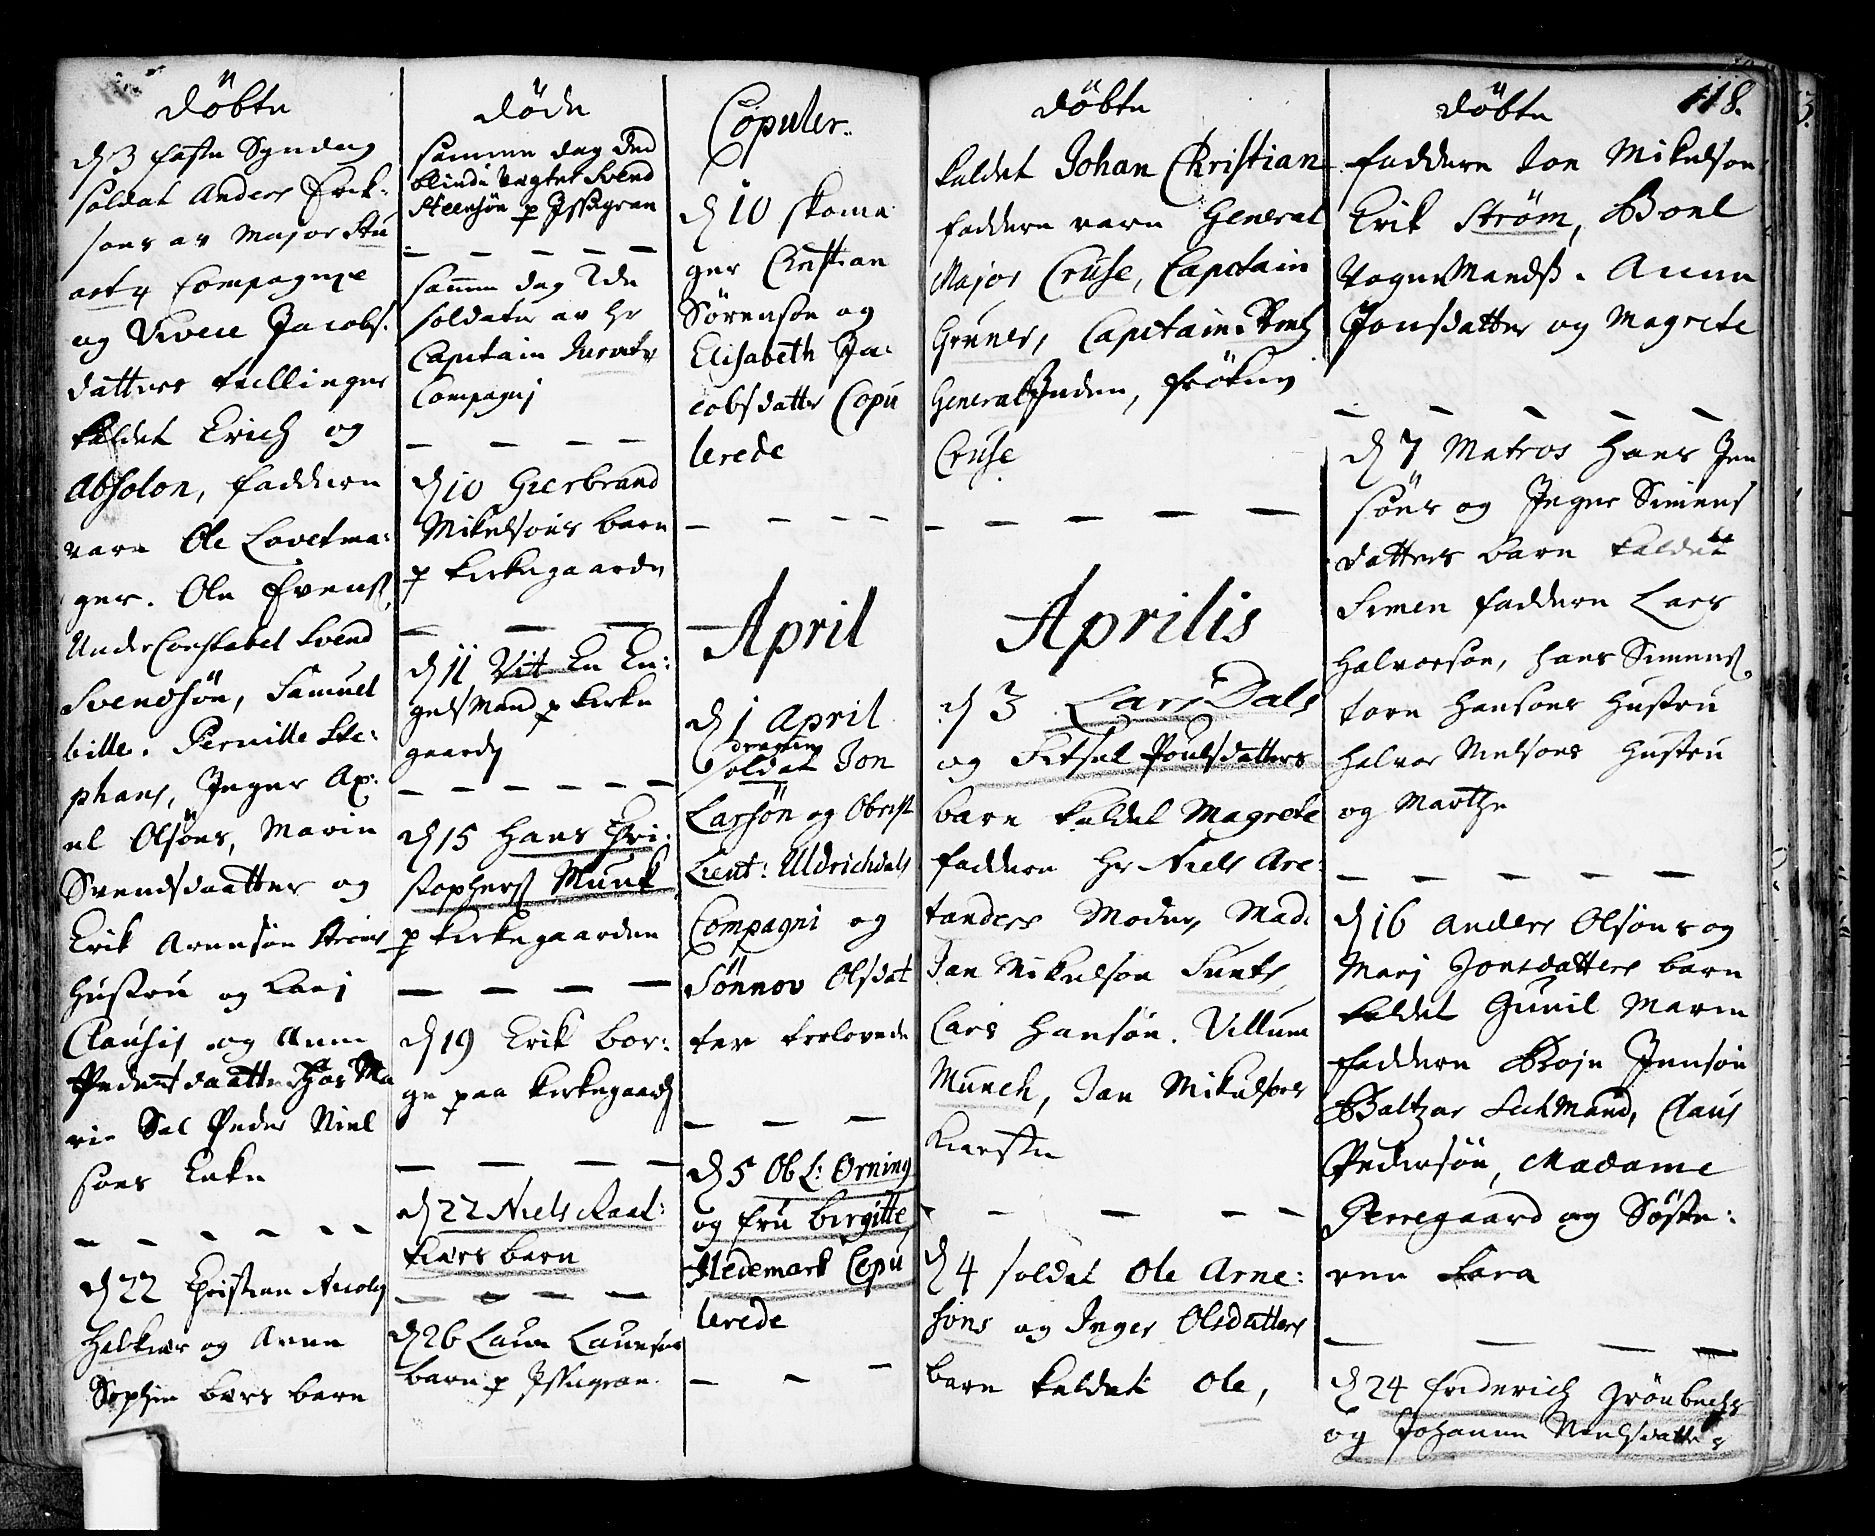 Döbte
d 3 faste Syndag
soldat Anders Erik:
sons av Major Stu
art4 Compagnie
og Vivece Jacobs.
datters tvillinger
kaldet Erich og
Absolon, faddere
vare Ole Lovetma:
ger. Ole Evens
Under Constabel Svend
Svendsön, Samuel
bille. Pernille Ste:
phans, Inger Ax:
el Olsöns, Marin
Svendsdaatter og
Erik Arnesön
Hustru og
Clausis og Anne
Peders daatter Ma
rie Sal Peder Niel
sons Enke
d 22 Christian
Halkier og Anne
Sophie bers barn
Döde
samme dag ded
blinde Svend
Steensön p
samme dag 2de
soldater av hr
Capitain
Compagni
d 10 Gierbrand
Mikelsöns barn
p kirkegaarde
d 11 Vit En En:
gels Mand p kirke
gaard
d 15 Hans Chri:
stophers Munk
p kirkegaarden
d 19 Erik bor:
ge paa kirkegaard
d 22 Niels Raad:
kiers barn
d 26 Laurs
barn p
Copuler.
d 10 skoma
ger Christian
Sörensøn og
Elisabeth Ja:
cobsdatter Copu
lerede
April
d 1 April
dragun
Soldat Jon
Larssön og Obrist
Lieut: Uldrichdals
Compagni og
Sönnov Olsdat
ter trolovede
d 5 Ob L: Orning
og fru birgitte
Hedemark Copu
lerede
Döbte
kaldet Johan Christian
faddere vare General
Major Cruse, Capitain
Gruner, Capitain
General Inden, fröken
Cruse
Aprilis
d 3 Lars Dals
og Sitsel Poulsdatters
barn kaldet Magrete
faddere hr Niels Are:
tanders Moder, Mad.
Jan Mikelson
Lars Hansön. Villum
Munch, Jan Mikelsons
Kiersten
d 4 soldat Ole Arne:
sons og Inger Olsdatters
barn kaldet Ole,
Döbte 118.
faddere Jon Mikelson
Erik Ström, Boel
Anne
Jonsdatter og Magrete
d 7 Matros Hans Jen
söns og Inger Simens
datters barn kaldet
Simen faddere Lars
Halvorson, Hans Simens
tore Hansons Hustru
Halvor Nielsons Hustru
og Marthe
d 16 Anders Olsöns og
Mari Jonsdatters barn
kaldet Gunil Maren
faddere Boje Jensön
Baltzar LuhMand, Claus
Pedersön, Madame
Pernegaard og Söste:
ren Sara
d 24 Friderich Grönbechs
og Johanne Nielsdatters